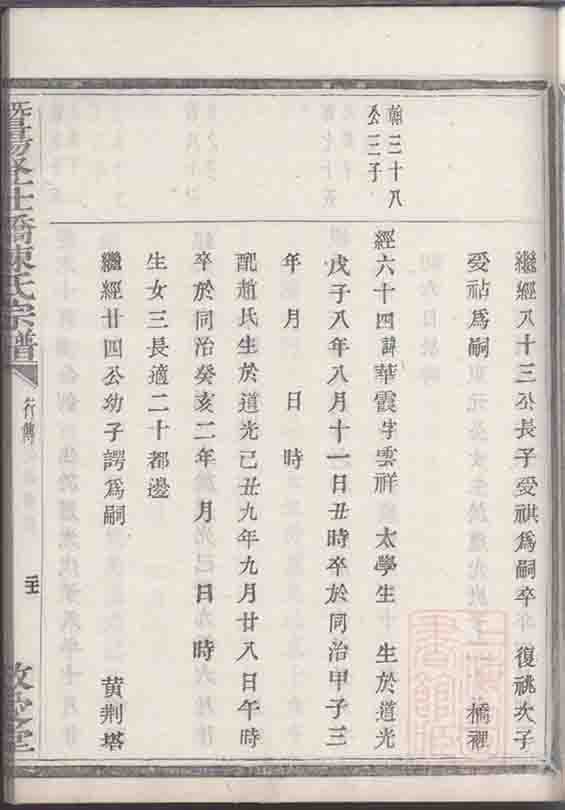 繼經八十三公長子受祺爲嗣卒 復祧次子
受祜爲嗣 橋裡
翰三十八
公三子
經六十四諱華霞字雲祥 太學生 生於道光
戊子八年八月十一日丑時卒於同治甲子三
年 月 日 時
配趙氏生於道光己丑九年九月廿八日午時
卒於同治癸亥二年 月 日 時
生女三長適二十都邊
繼經廿四公幼子諤爲嗣 黄荆塔
橋陳氏宗譜
行傳